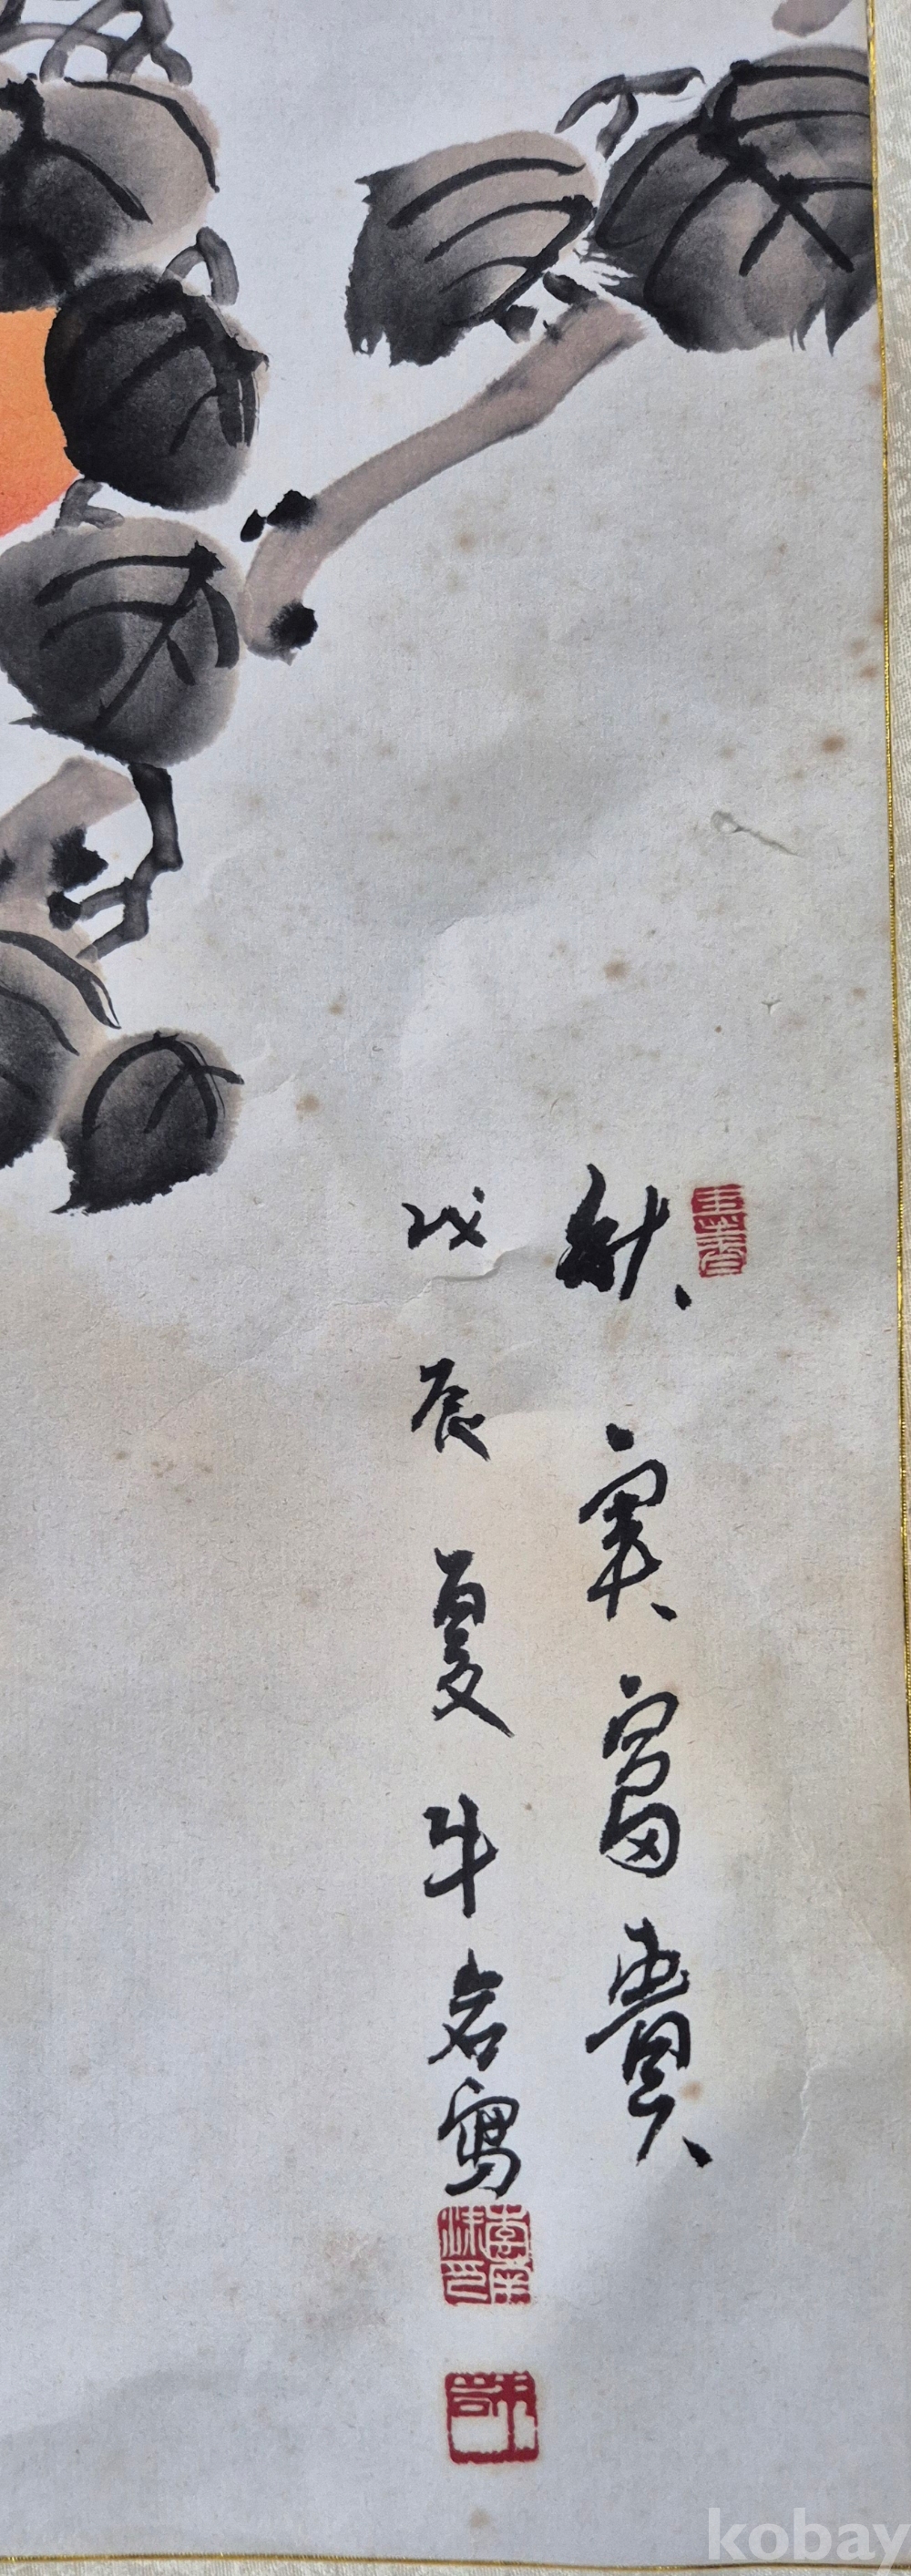 秋實富貴
戊辰夏牛岩寫
kobay